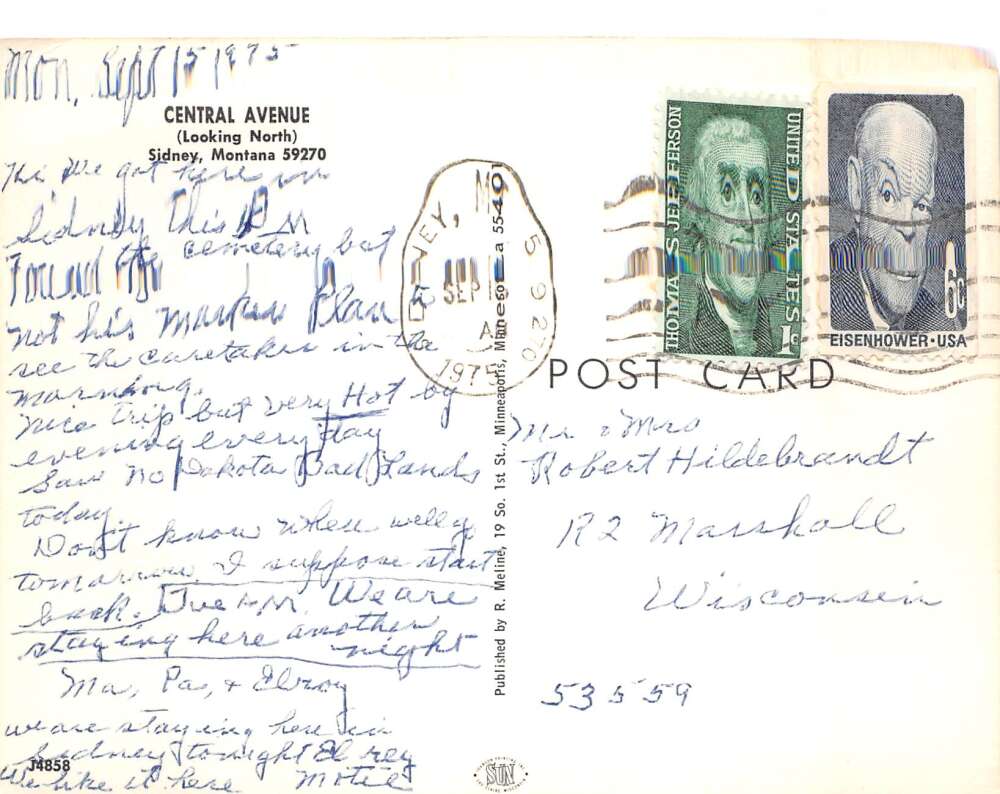 Mon, Sept 15 1975
CENTRAL AVENUE
(Looking North)
Sidney, Montana 59270
We got here in
Sidney This P M
Found the cemetery but
not his
see the caretaker in the
morning.
nice trip but very Hot by
evening every day
Saw No Dakota Bad Lands
today.
Don't know when
tomorrow I suppose start
back. We are
staying here another
night
Ma, Pa, + Elroy
we are staying here in
Sidney tonight El roy
We like it here
J4858
Published by R. Meline, 19 So. 1st St., Minneapolis, Minnesota 55401
SIDNEY, M
59270
SEP
A
1975
THOMAS JEFFERSON
UNITED STATES
1c
6c
EISENHOWER·USA
POST CARD
Mr & Mrs
Robert Hildebrandt
R2 Marshall
Wisconsin
53559
SUN